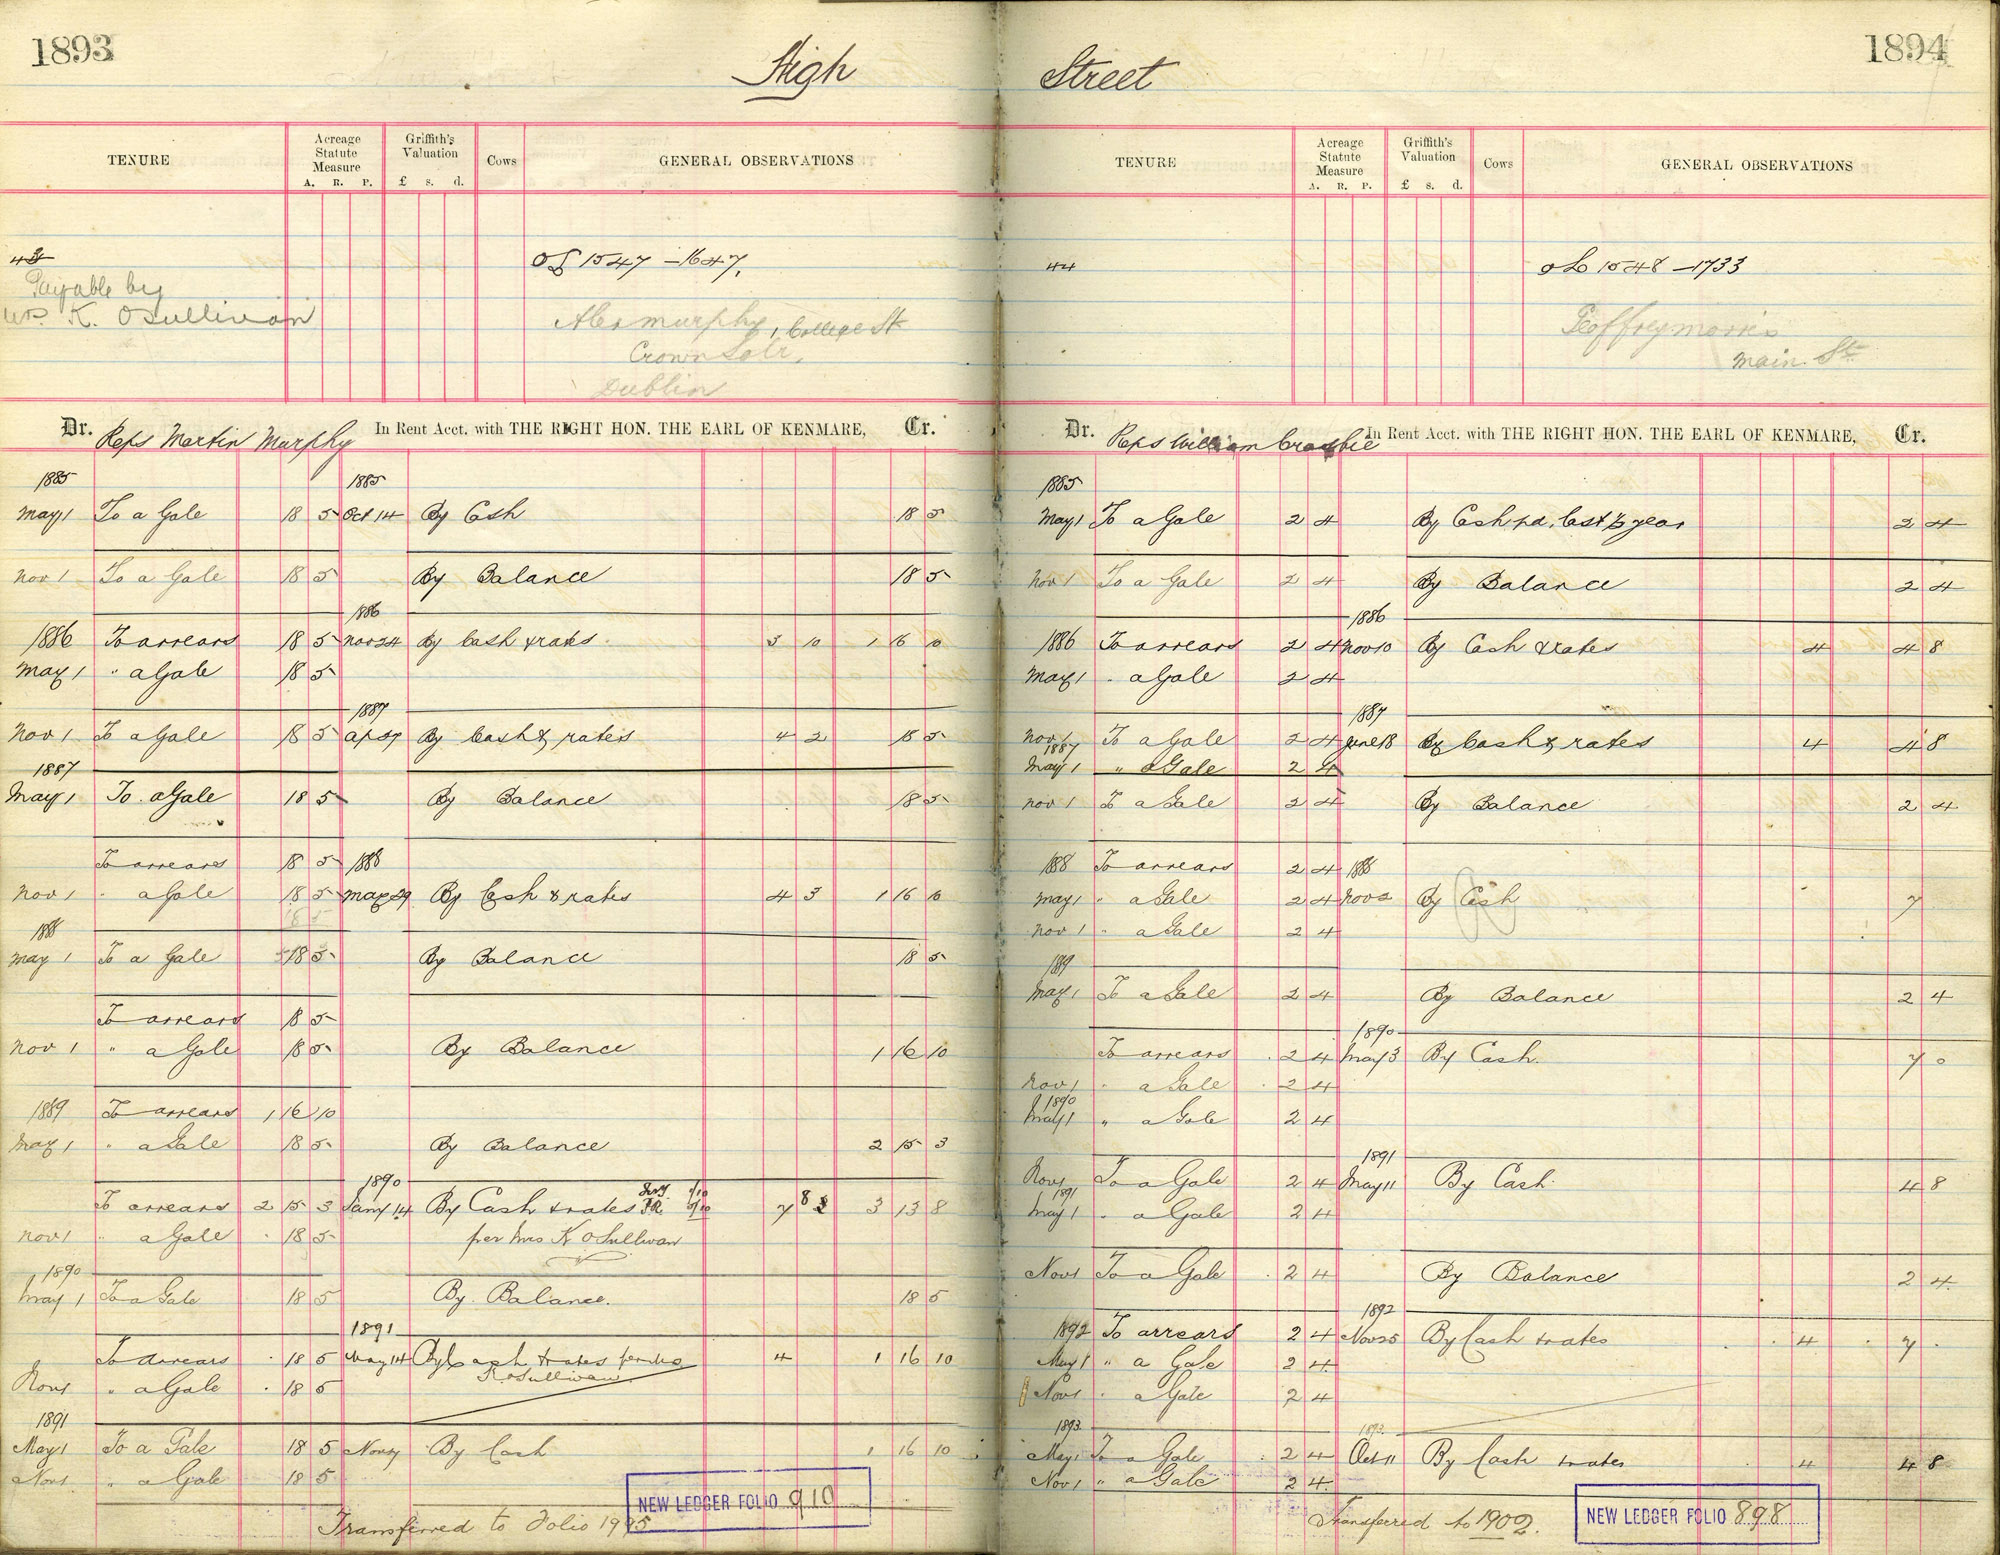 1893
High
TENURE Acreage Statute Measure A. R. P. Griffith's Valuation £ s. d. Cows GENERAL OBSERVATIONS
43 OL 1547 - 1647.
Payable by
Mrs K. OSullivan
Alex Murphy, College St
Crown Solr,
Dublin
Dr. Reps Martin Murphy In Rent Acct. with THE RIGHT HON. THE EARL OF KENMARE, Cr.
1885 1885
May 1 To a Gale 18 5 Oct 14 By Cash 18 5
Nov 1 To a Gale 18 5 By Balance 18 5
1886
1886 To arrears 18 5 Nov 24 By Cash & rates 3 10 1 16 10
May 1 " a Gale 18 5
1887
Nov 1 To a Gale 18 5 Ap 27 By Cash & rates 4 2 18 5
1887
May 1 To a Gale 18 5 By Balance 18 5
To arrears 18 5 1888
Nov 1 " a Gale 18 5 May 29 By Cash & rates 4 3 1 16 10
1888
May 1 To a Gale 18 5 By Balance 18 5
To arrears 18 5
Nov 1 " a Gale 18 5 By Balance 1 16 10
1889 To arrears 1 16 10
May 1 " a Gale 18 5 By Balance 2 15 3
1890
To arrears 2 15 3 Jany 14 By Cash & rates 7 8 3 13 8
Nov 1 " a Gale 18 5 per Mrs K OSullivan
1890
May 1 To a Gale 18 5 By Balance. 18 5
1891
To Arrears 18 5 May 14 By Cash & rates per Mrs 4 1 16 10
K OSullivan
Nov 1 " a Gale 18 5
1891
May 1 To a Gale 18 5 Nov By Cash 1 16 10
Nov 1 " a Gale 18 5
NEW LEDGER FOLIO 910
Transferred to Folio 1995
1894
Street
TENURE Acreage Statute Measure A. R. P. Griffith's Valuation £ s. d. Cows GENERAL OBSERVATIONS
44 OL 1548 - 1733
Geoffrey Morris
Main St
Dr. Reps William Crosbie In Rent Acct. with THE RIGHT HON. THE EARL OF KENMARE, Cr.
1885
May 1 To a Gale 2 4 By Cash pd. last ½ year 2 4
Nov 1 To a Gale 2 4 By Balance 2 4
1886
1886 To arrears 2 4 Nov 10 By Cash & rates 4 4 8
May 1 " a Gale 2 4
1887
Nov 1 To a Gale 2 4 June 18 By Cash & rates 4 4 8
1887
May 1 " a Gale 2 4
Nov 1 To a Gale 2 4 By Balance 2 4
1888 To arrears 2 4 1888
May 1 " a Gale 2 4 Nov 2 By Cash 7
Nov 1 " a Gale 2 4
1889
May 1 To a Gale 2 4 By Balance 2 4
1890
To arrears 2 4 May 3 By Cash. 7 0
Nov 1 " a Gale 2 4
1890
May 1 " a Gale 2 4
1891
Nov 1 To a Gale 2 4 May 11 By Cash 4 8
1891
May 1 " a Gale 2 4
Nov 1 To a Gale 2 4 By Balance 2 4
1892
1892 To arrears 2 4 Nov 25 By Cash & rates 4 7
May 1 " a Gale 2 4
Nov 1 " a Gale 2 4
1893 1893
May 1 To a Gale 2 4 Oct 11 By Cash & rates 4 4 8
Nov 1 " a Gale 2 4
Transferred to 1902.
NEW LEDGER FOLIO 898